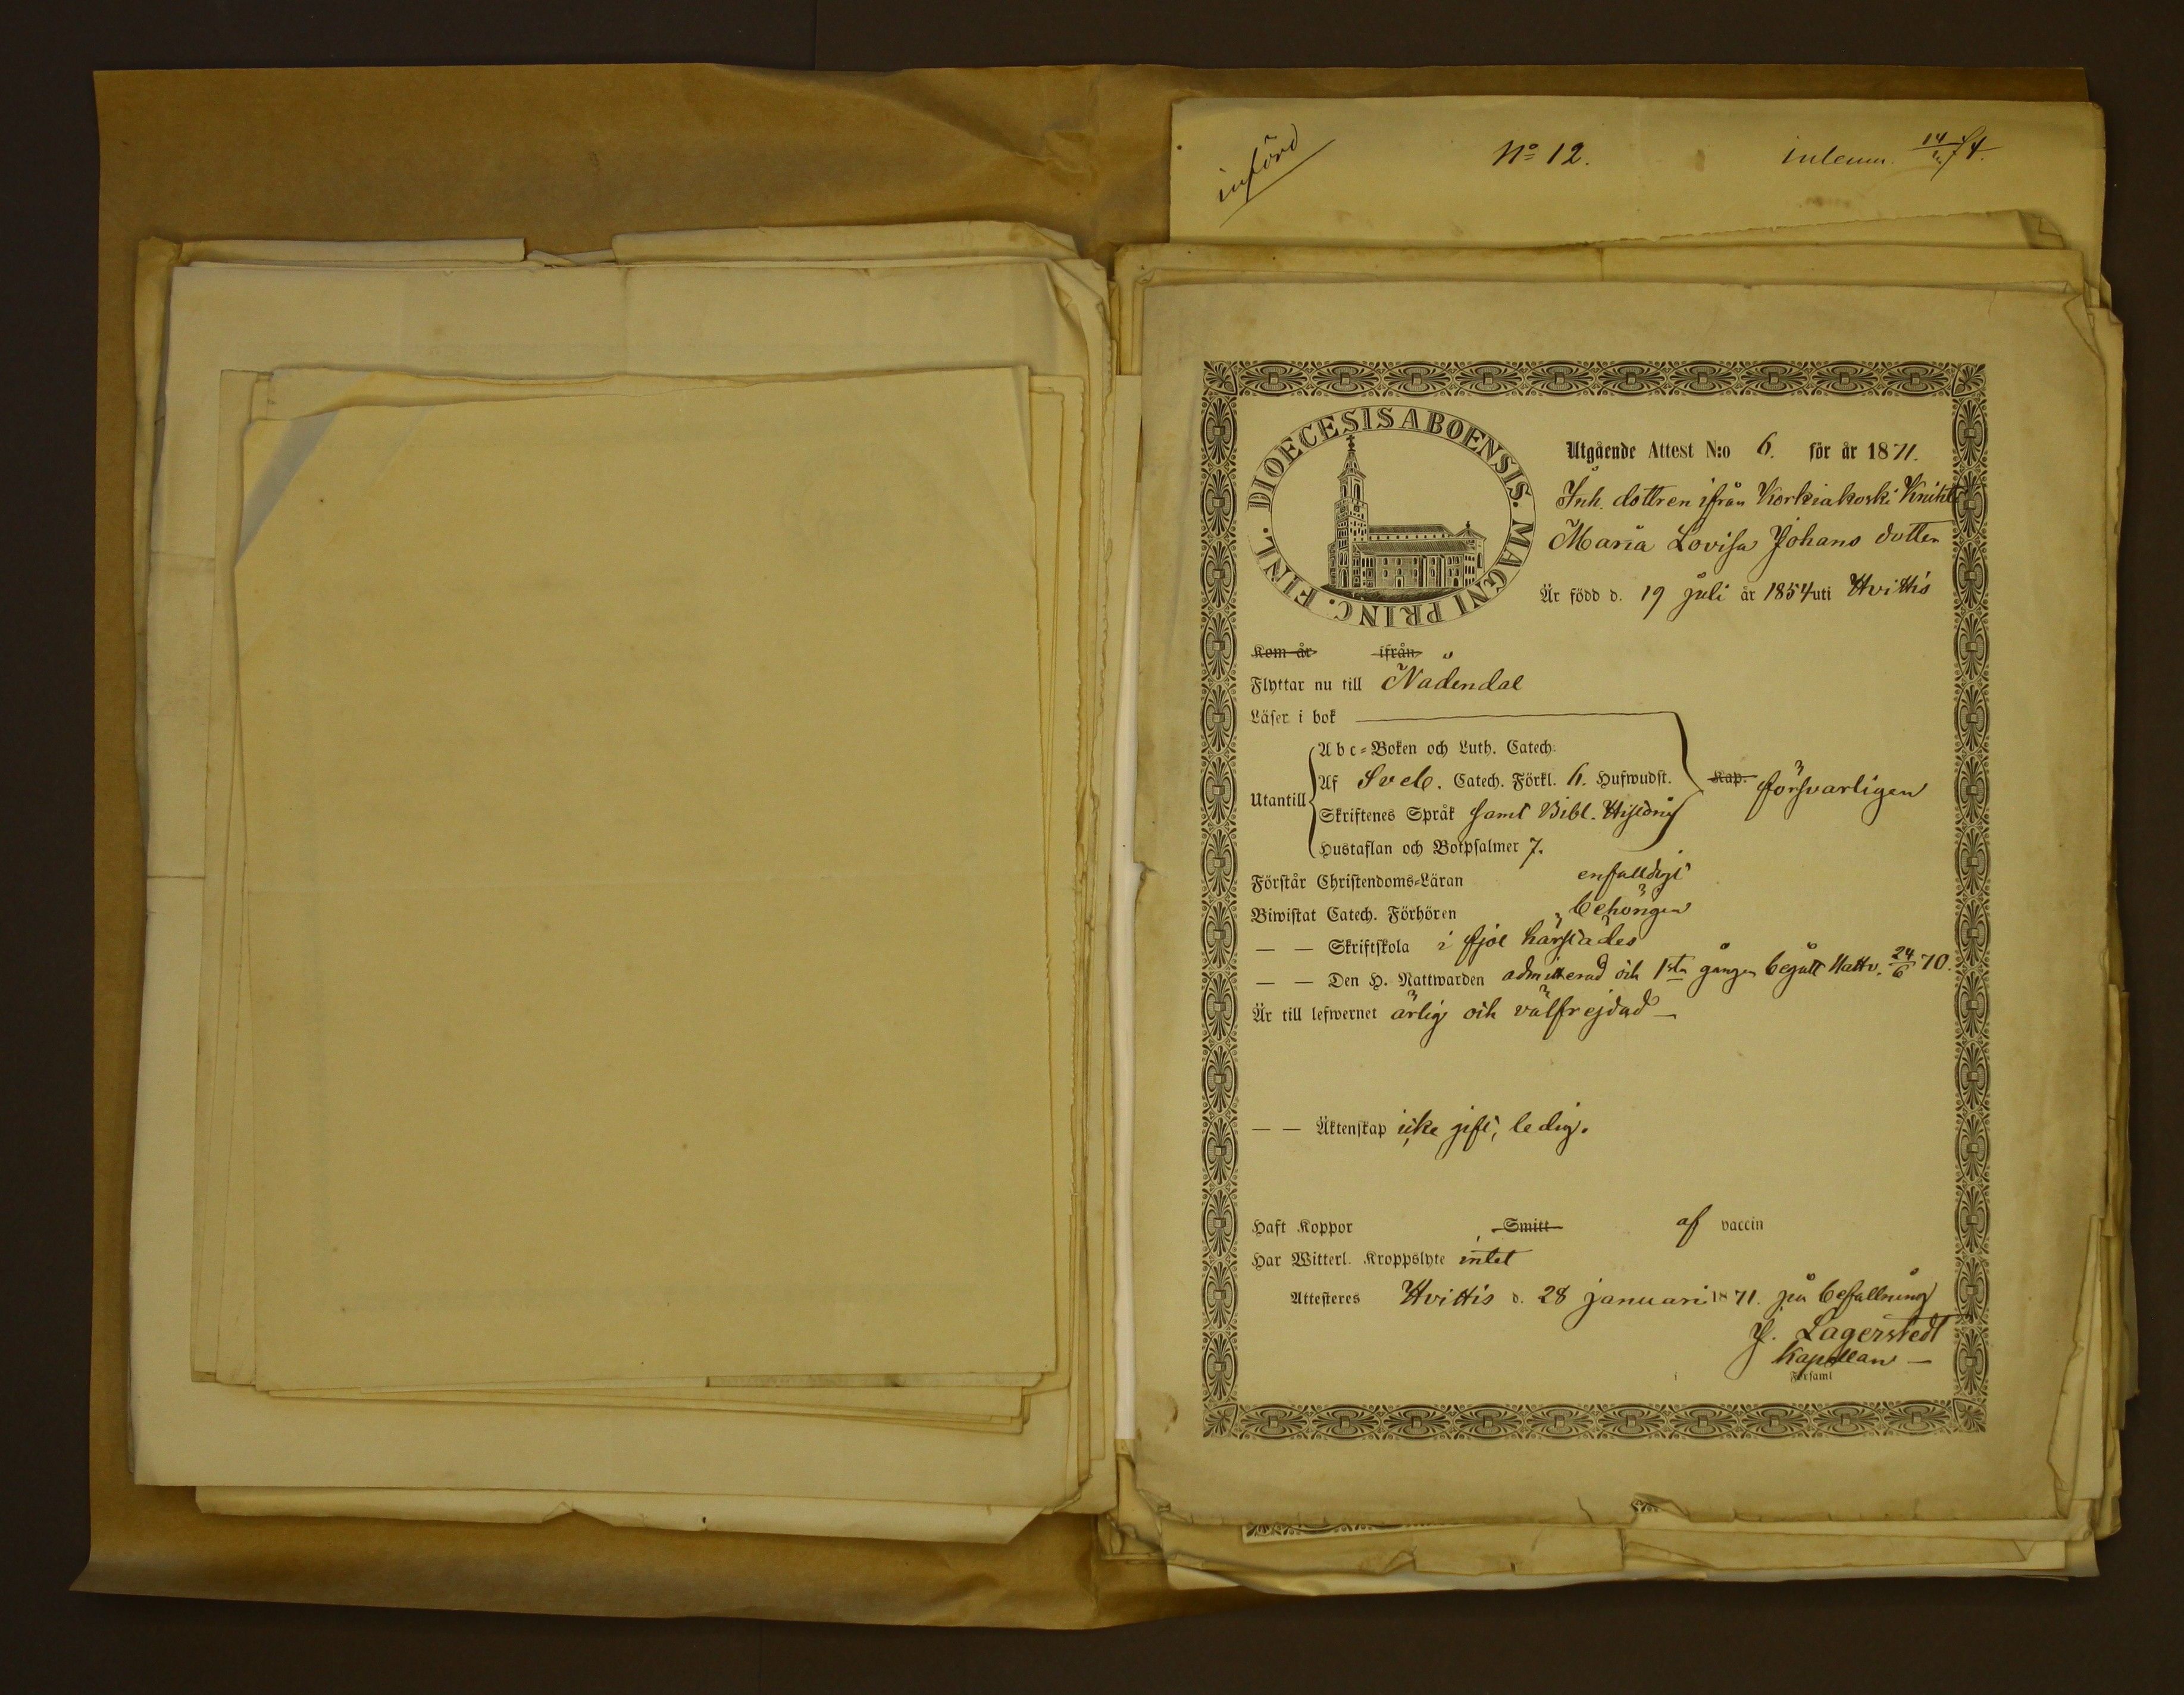 införd
No 12.
inlemn. 14/2 74.
DIOECESIS ABOENSIS. MAGNI PRINC. FINL.
Utgående Attest N:o 6. för år 1871.
Inh. dottren ifrån Korkiakoski Knihti
Maria Lovisa Johans dotter
Är född d. 19 juli år 1854 uti Hvittis
Kom år ifrån
Flyttar nu till Nådendal
Läser i bok
Abc-Boken och Luth. Catech.
Af Sveb. Catech. Förkl. 6. Hufwudst. Kap. försvarligen
Utantill
Skriftenes Språk samt Bibl. Historie
Hustaflan och Botpsalmer 7.
Förstår Christendoms-Läran enfalldigt
Biwistat Catech. Förhören behörigen
— — Skriftskola i fjol härstädes
— — Den H. Nattwarden admitterad och 1sta gången begått Nattv. 24/6 70.
Är till lefwernet ärlig och välfrejdad —
— — Äktenskap icke gift, ledig.
Haft Koppor Smitt af vaccin
Har Witterl. Kroppslyte intet
Attesteres Hvittis d. 28 januari 1871. på befallning
J. Lagerstedt
Kapellan —
i Församl